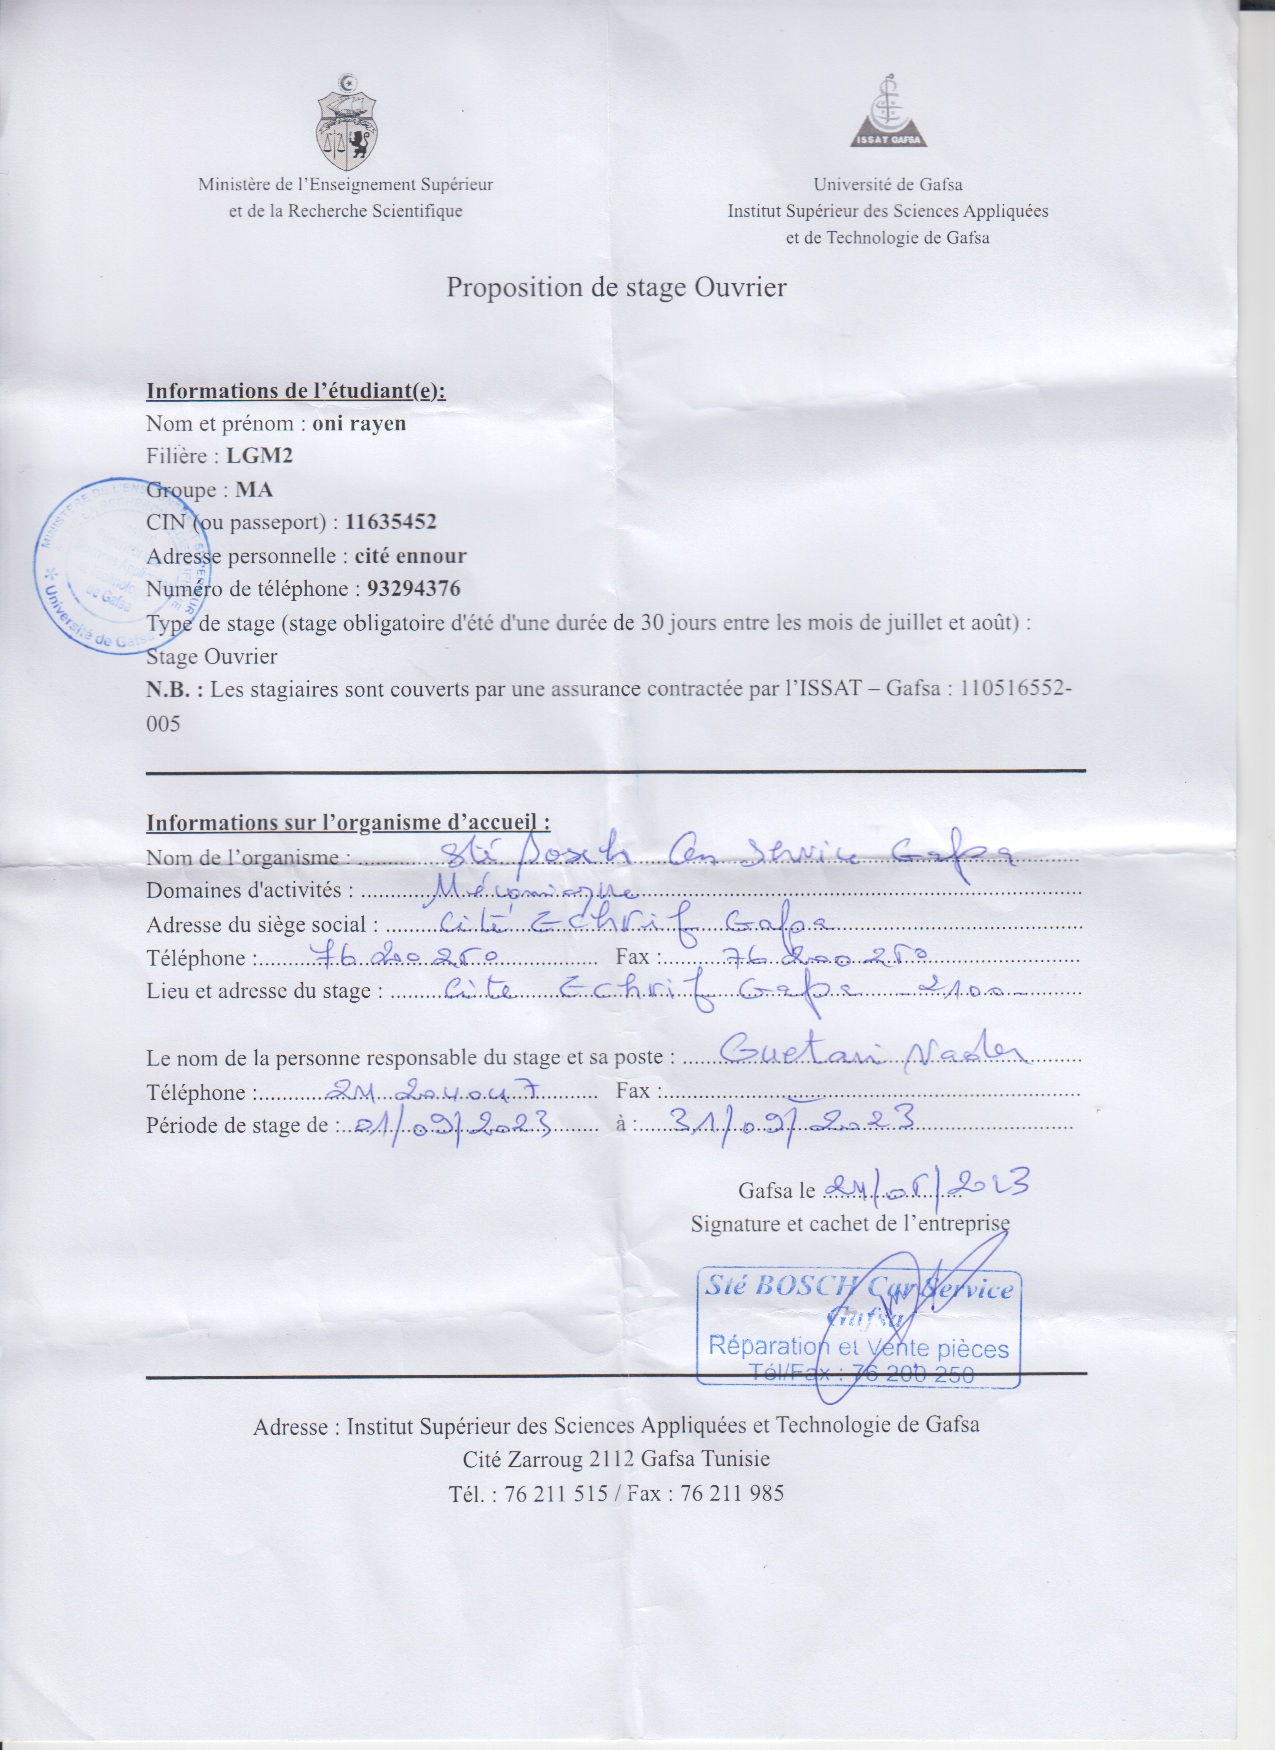 ISSAT GAFSA
Ministère de l’Enseignement Supérieur
et de la Recherche Scientifique
Université de Gafsa
Institut Supérieur des Sciences Appliquées
et de Technologie de Gafsa
Proposition de stage Ouvrier
Informations de l’étudiant(e):
Nom et prénom : oni rayen
Filière : LGM2
Groupe : MA
CIN (ou passeport) : 11635452
Adresse personnelle : cité ennour
Numéro de téléphone : 93294376
Type de stage (stage obligatoire d'été d'une durée de 30 jours entre les mois de juillet et août) :
Stage Ouvrier
N.B. : Les stagiaires sont couverts par une assurance contractée par l’ISSAT – Gafsa : 110516552-
005
Université de Gafsa
de Gafsa
Informations sur l’organisme d’accueil :
Nom de l’organisme : Sté Bosch Car Service Gafsa
Domaines d'activités : Mécanique
Adresse du siège social : Cité Echrif Gafsa
Téléphone : 76 200 250 Fax : 76 200 250
Lieu et adresse du stage : Cité Echrif Gafsa - 2100 -
Le nom de la personne responsable du stage et sa poste : Guetari Nader
Téléphone : Fax :
Période de stage de : 01/09/2023 à : 31/09/2023
Gafsa le 24/05/2023
Signature et cachet de l’entreprise
Sté BOSCH Car Service
Gafsa
Réparation et Vente pièces
Tél/Fax : 76 200 250
Adresse : Institut Supérieur des Sciences Appliquées et Technologie de Gafsa
Cité Zarroug 2112 Gafsa Tunisie
Tél. : 76 211 515 / Fax : 76 211 985